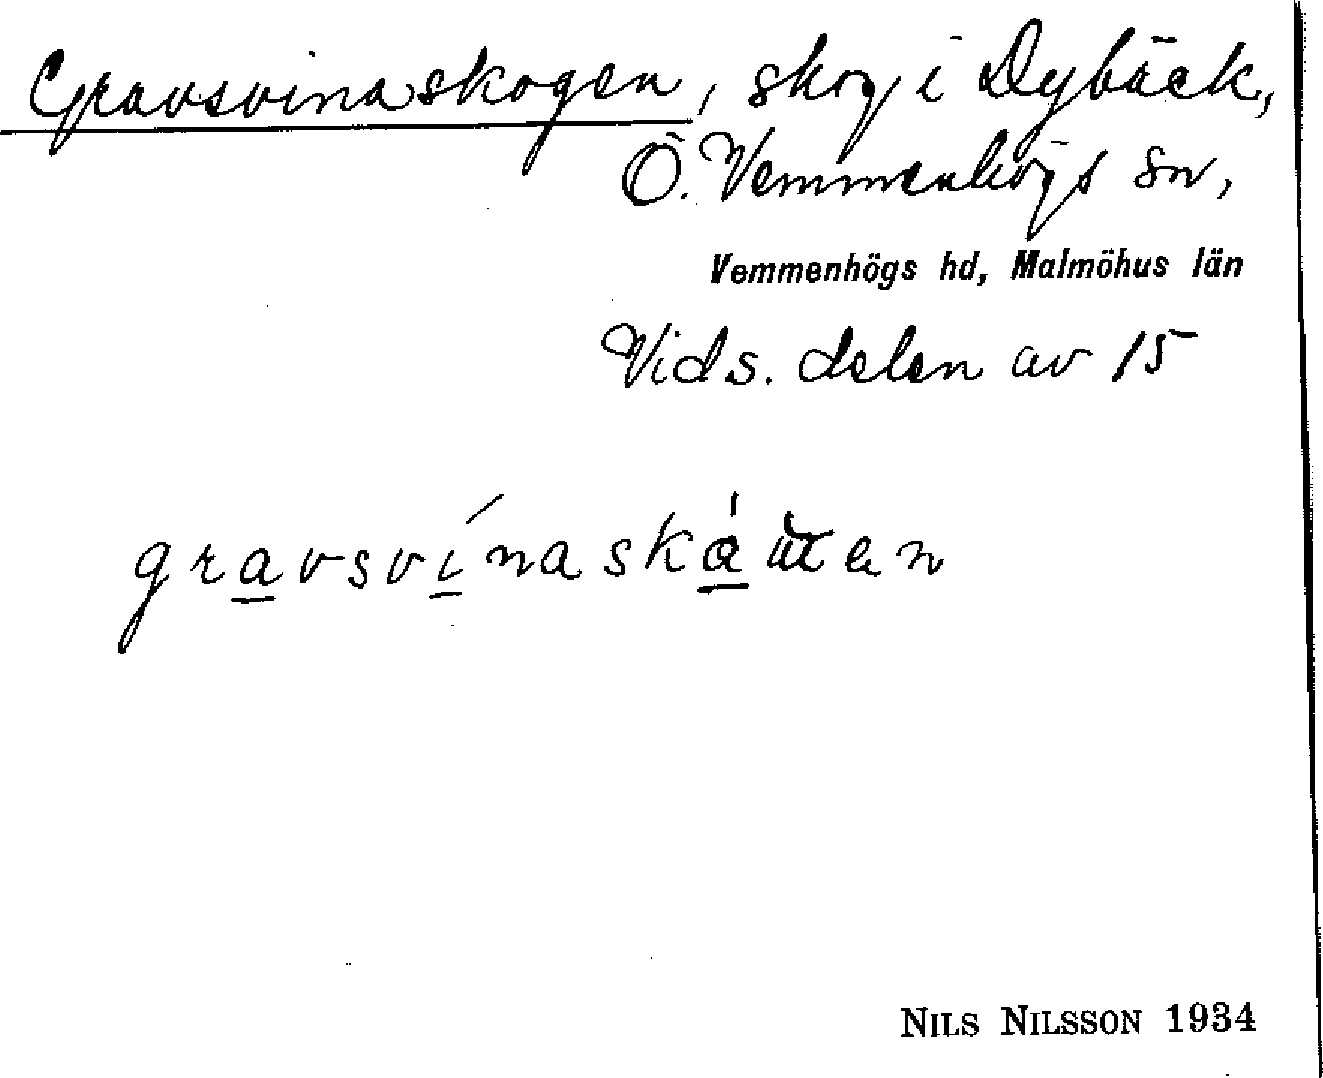 Gravsvinaskogen, skog i Dybäck,
Ö. Vemmenhögs sn,
Vemmenhögs hd, Malmöhus län
Vids. delen av 15
NILS NILSSON 1934